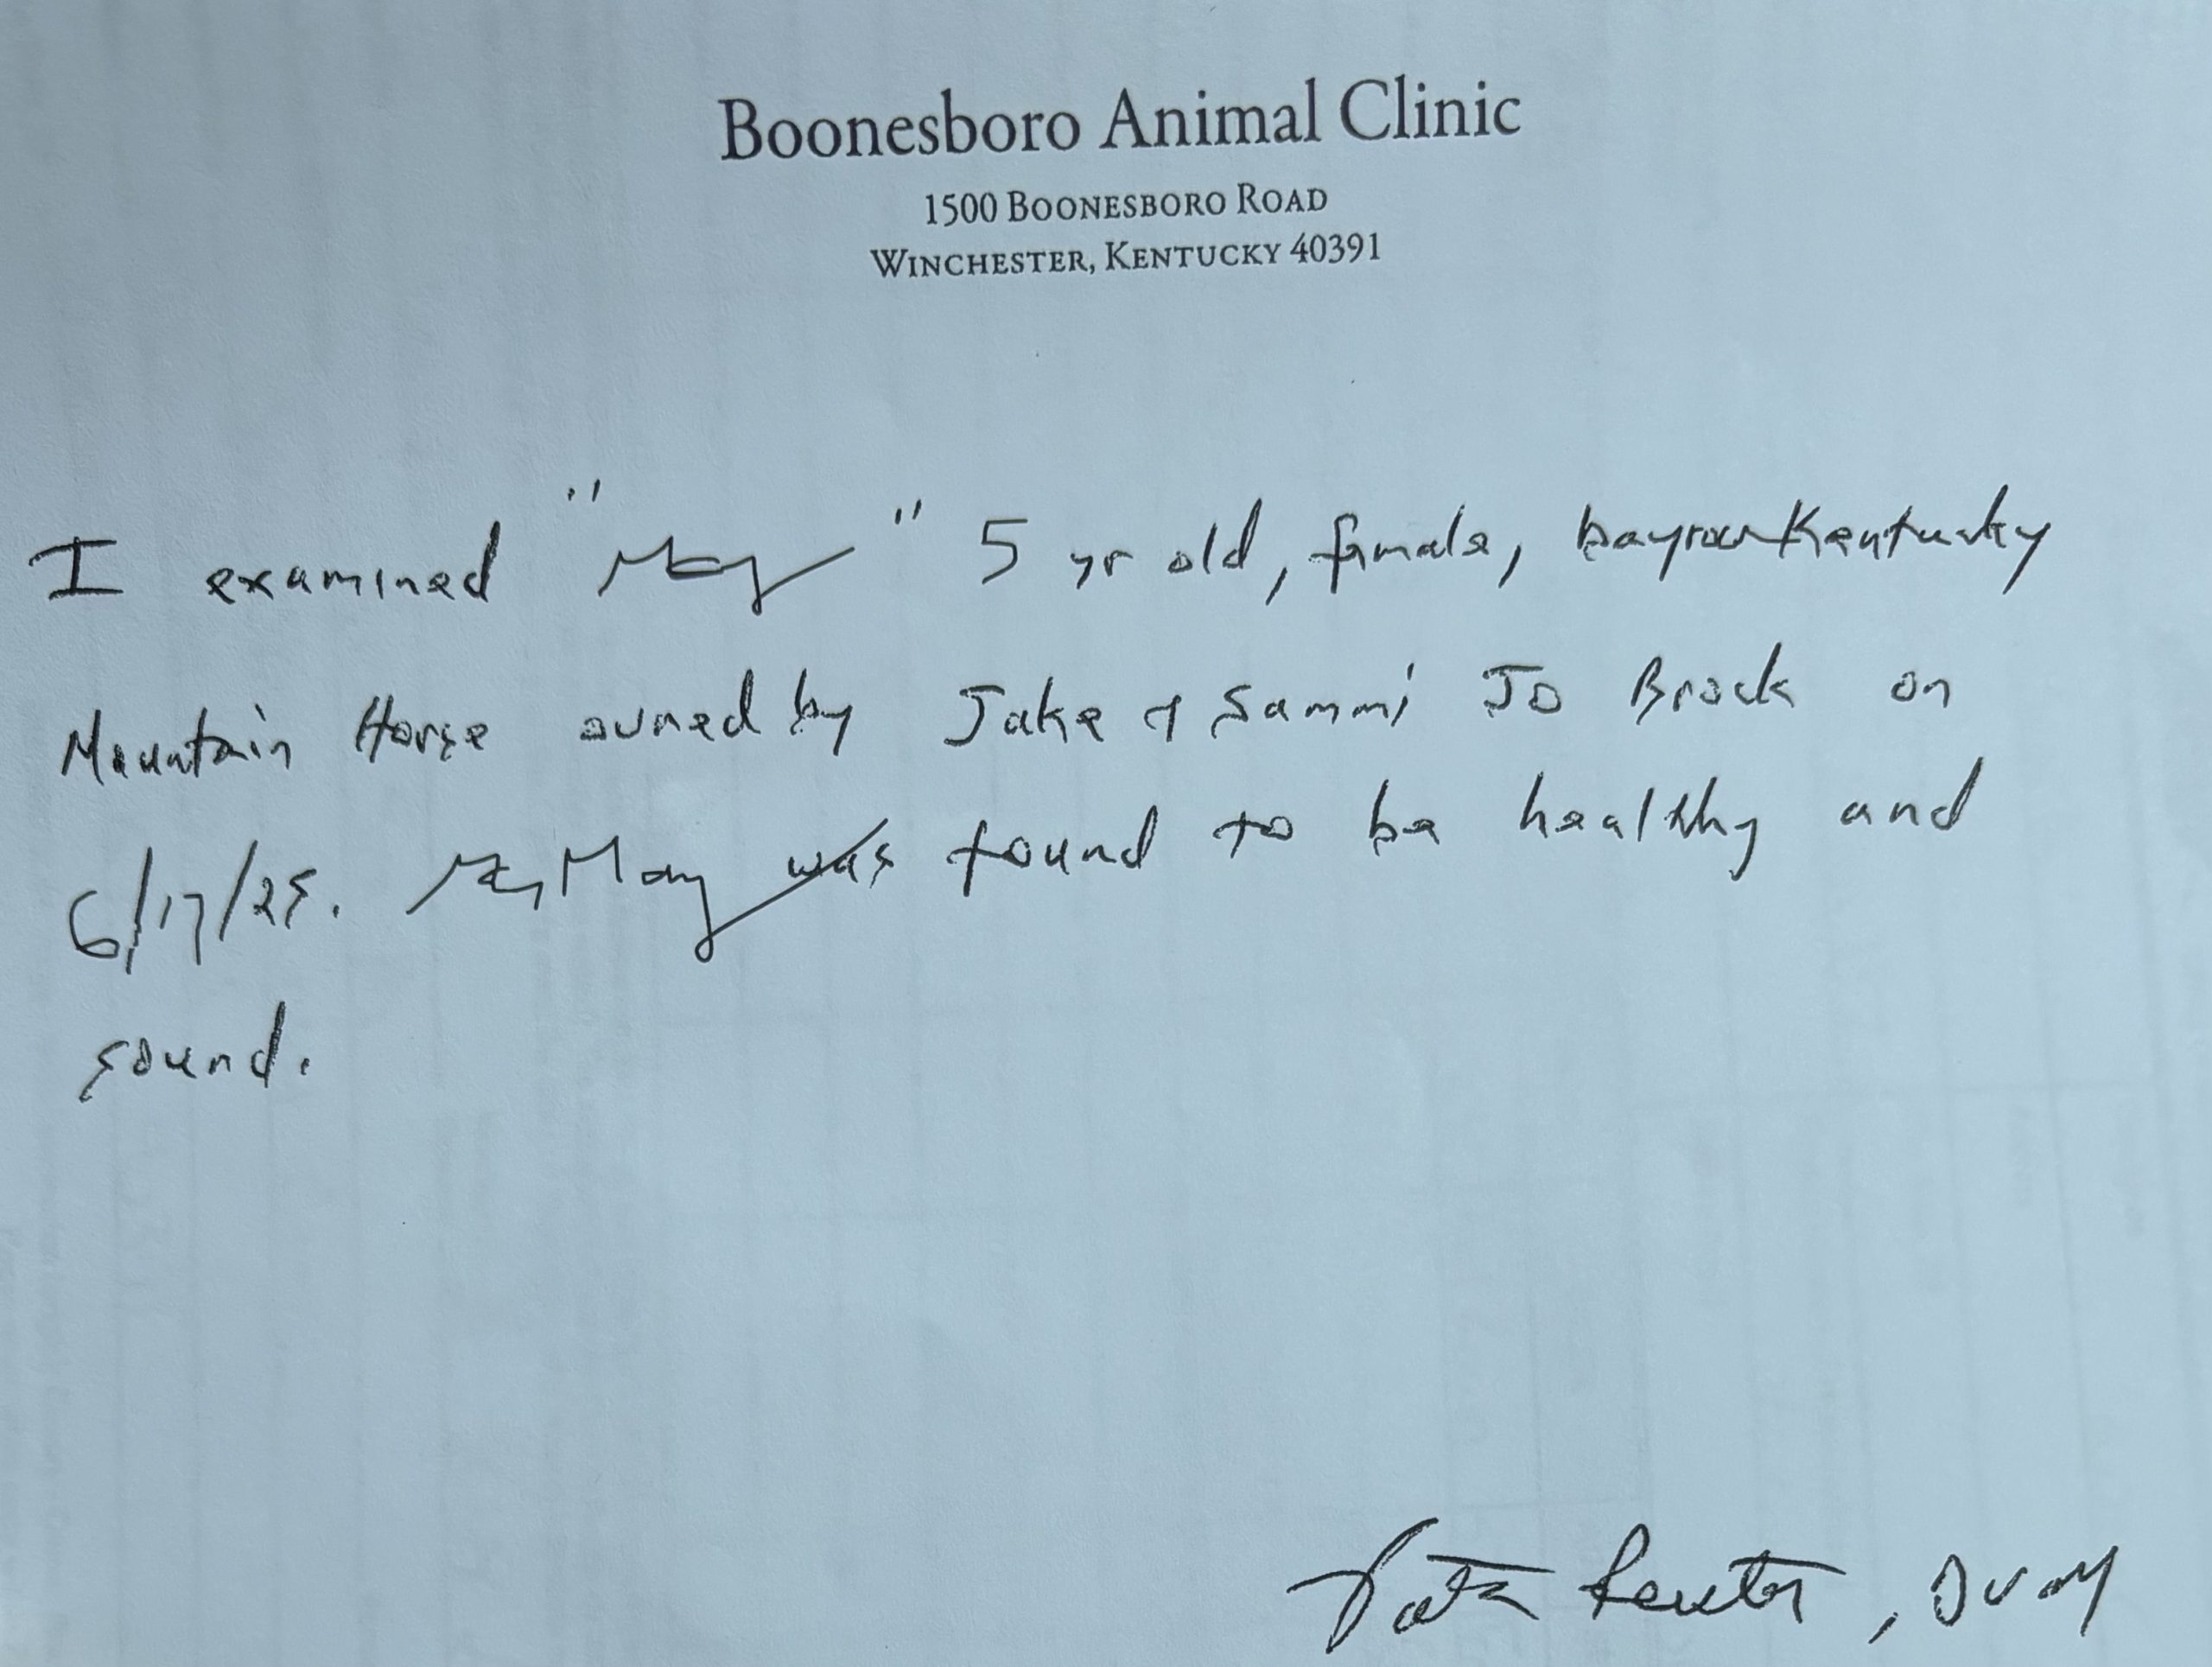 Boonesboro Animal Clinic
1500 Boonesboro Road
Winchester, Kentucky 40391
I examined "May" 5 yr old, female, bay roan Kentucky
Mountain Horse owned by Jake & Sammi Jo Brock on
6/17/25. May was found to be healthy and
sound.
, DVM